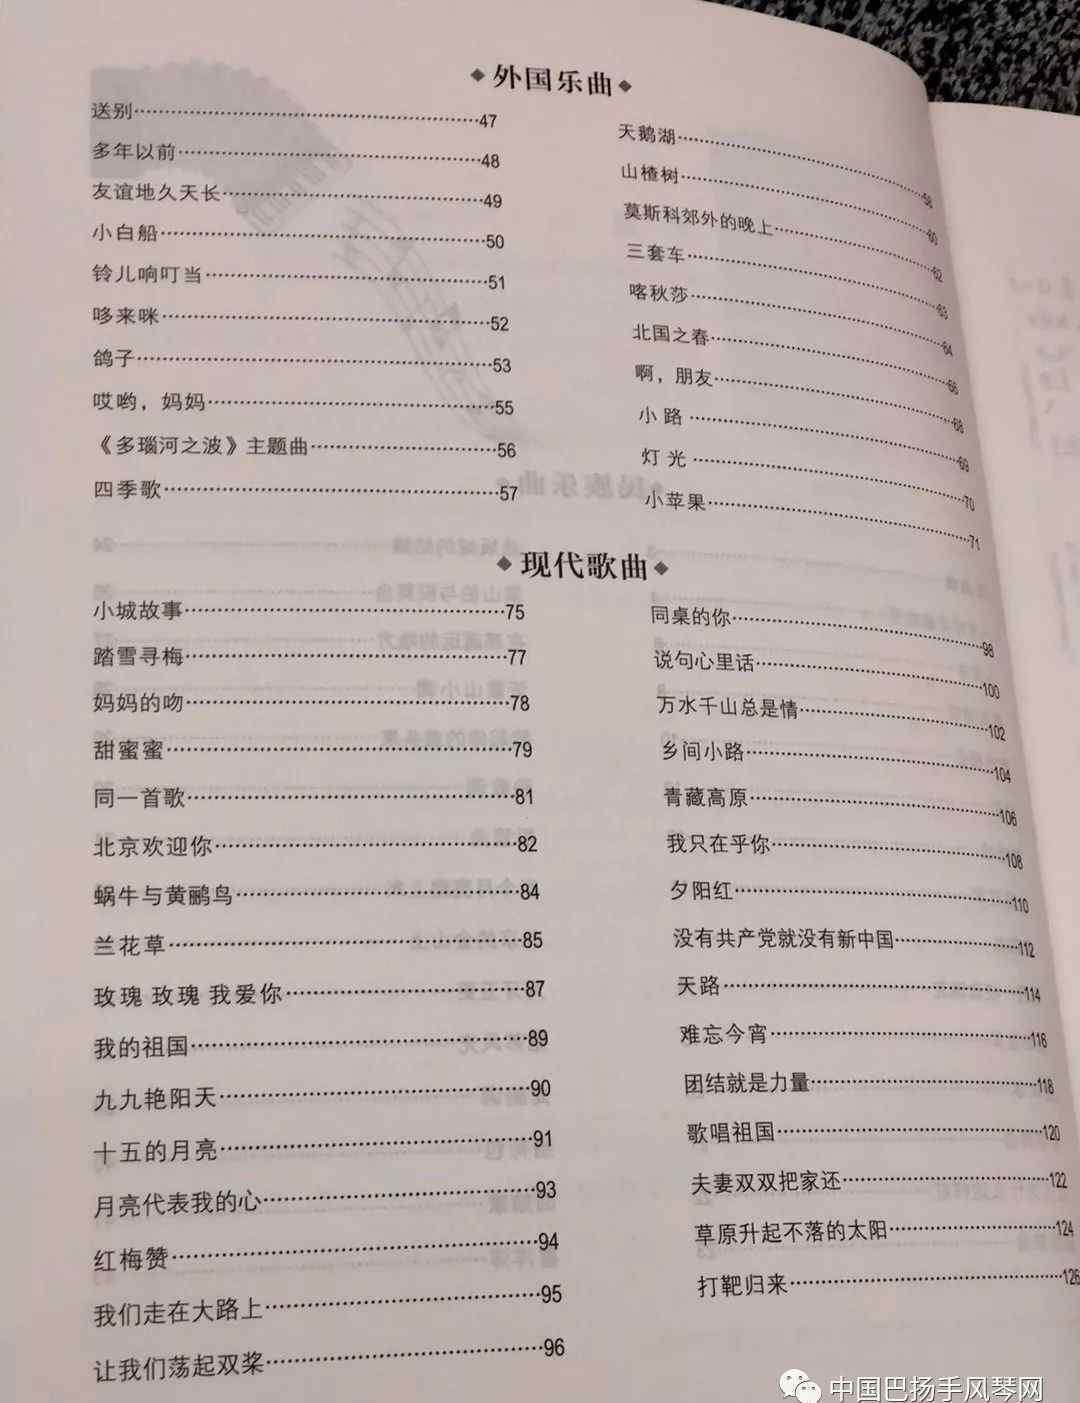 外国乐曲
送别 47
多年以前 48
友谊地久天长 49
小白船 50
铃儿响叮当 51
哆来咪 52
鸽子 53
哎哟，妈妈 55
《多瑙河之波》主题曲 56
四季歌 57
天鹅湖 58
山楂树 60
莫斯科郊外的晚上 62
三套车 63
喀秋莎 64
北国之春 66
啊，朋友 68
小路 69
灯光 70
小苹果 71
现代歌曲
小城故事 75
踏雪寻梅 77
妈妈的吻 78
甜蜜蜜 79
同一首歌 81
北京欢迎你 82
蜗牛与黄鹂鸟 84
兰花草 85
玫瑰 玫瑰 我爱你 87
我的祖国 89
九九艳阳天 90
十五的月亮 91
月亮代表我的心 93
红梅赞 94
我们走在大路上 95
让我们荡起双桨 96
同桌的你 98
说句心里话 100
万水千山总是情 102
乡间小路 104
青藏高原 106
我只在乎你 108
夕阳红 110
没有共产党就没有新中国 112
天路 114
难忘今宵 116
团结就是力量 118
歌唱祖国 120
夫妻双双把家还 122
草原升起不落的太阳 124
打靶归来 126
中国巴扬手风琴网